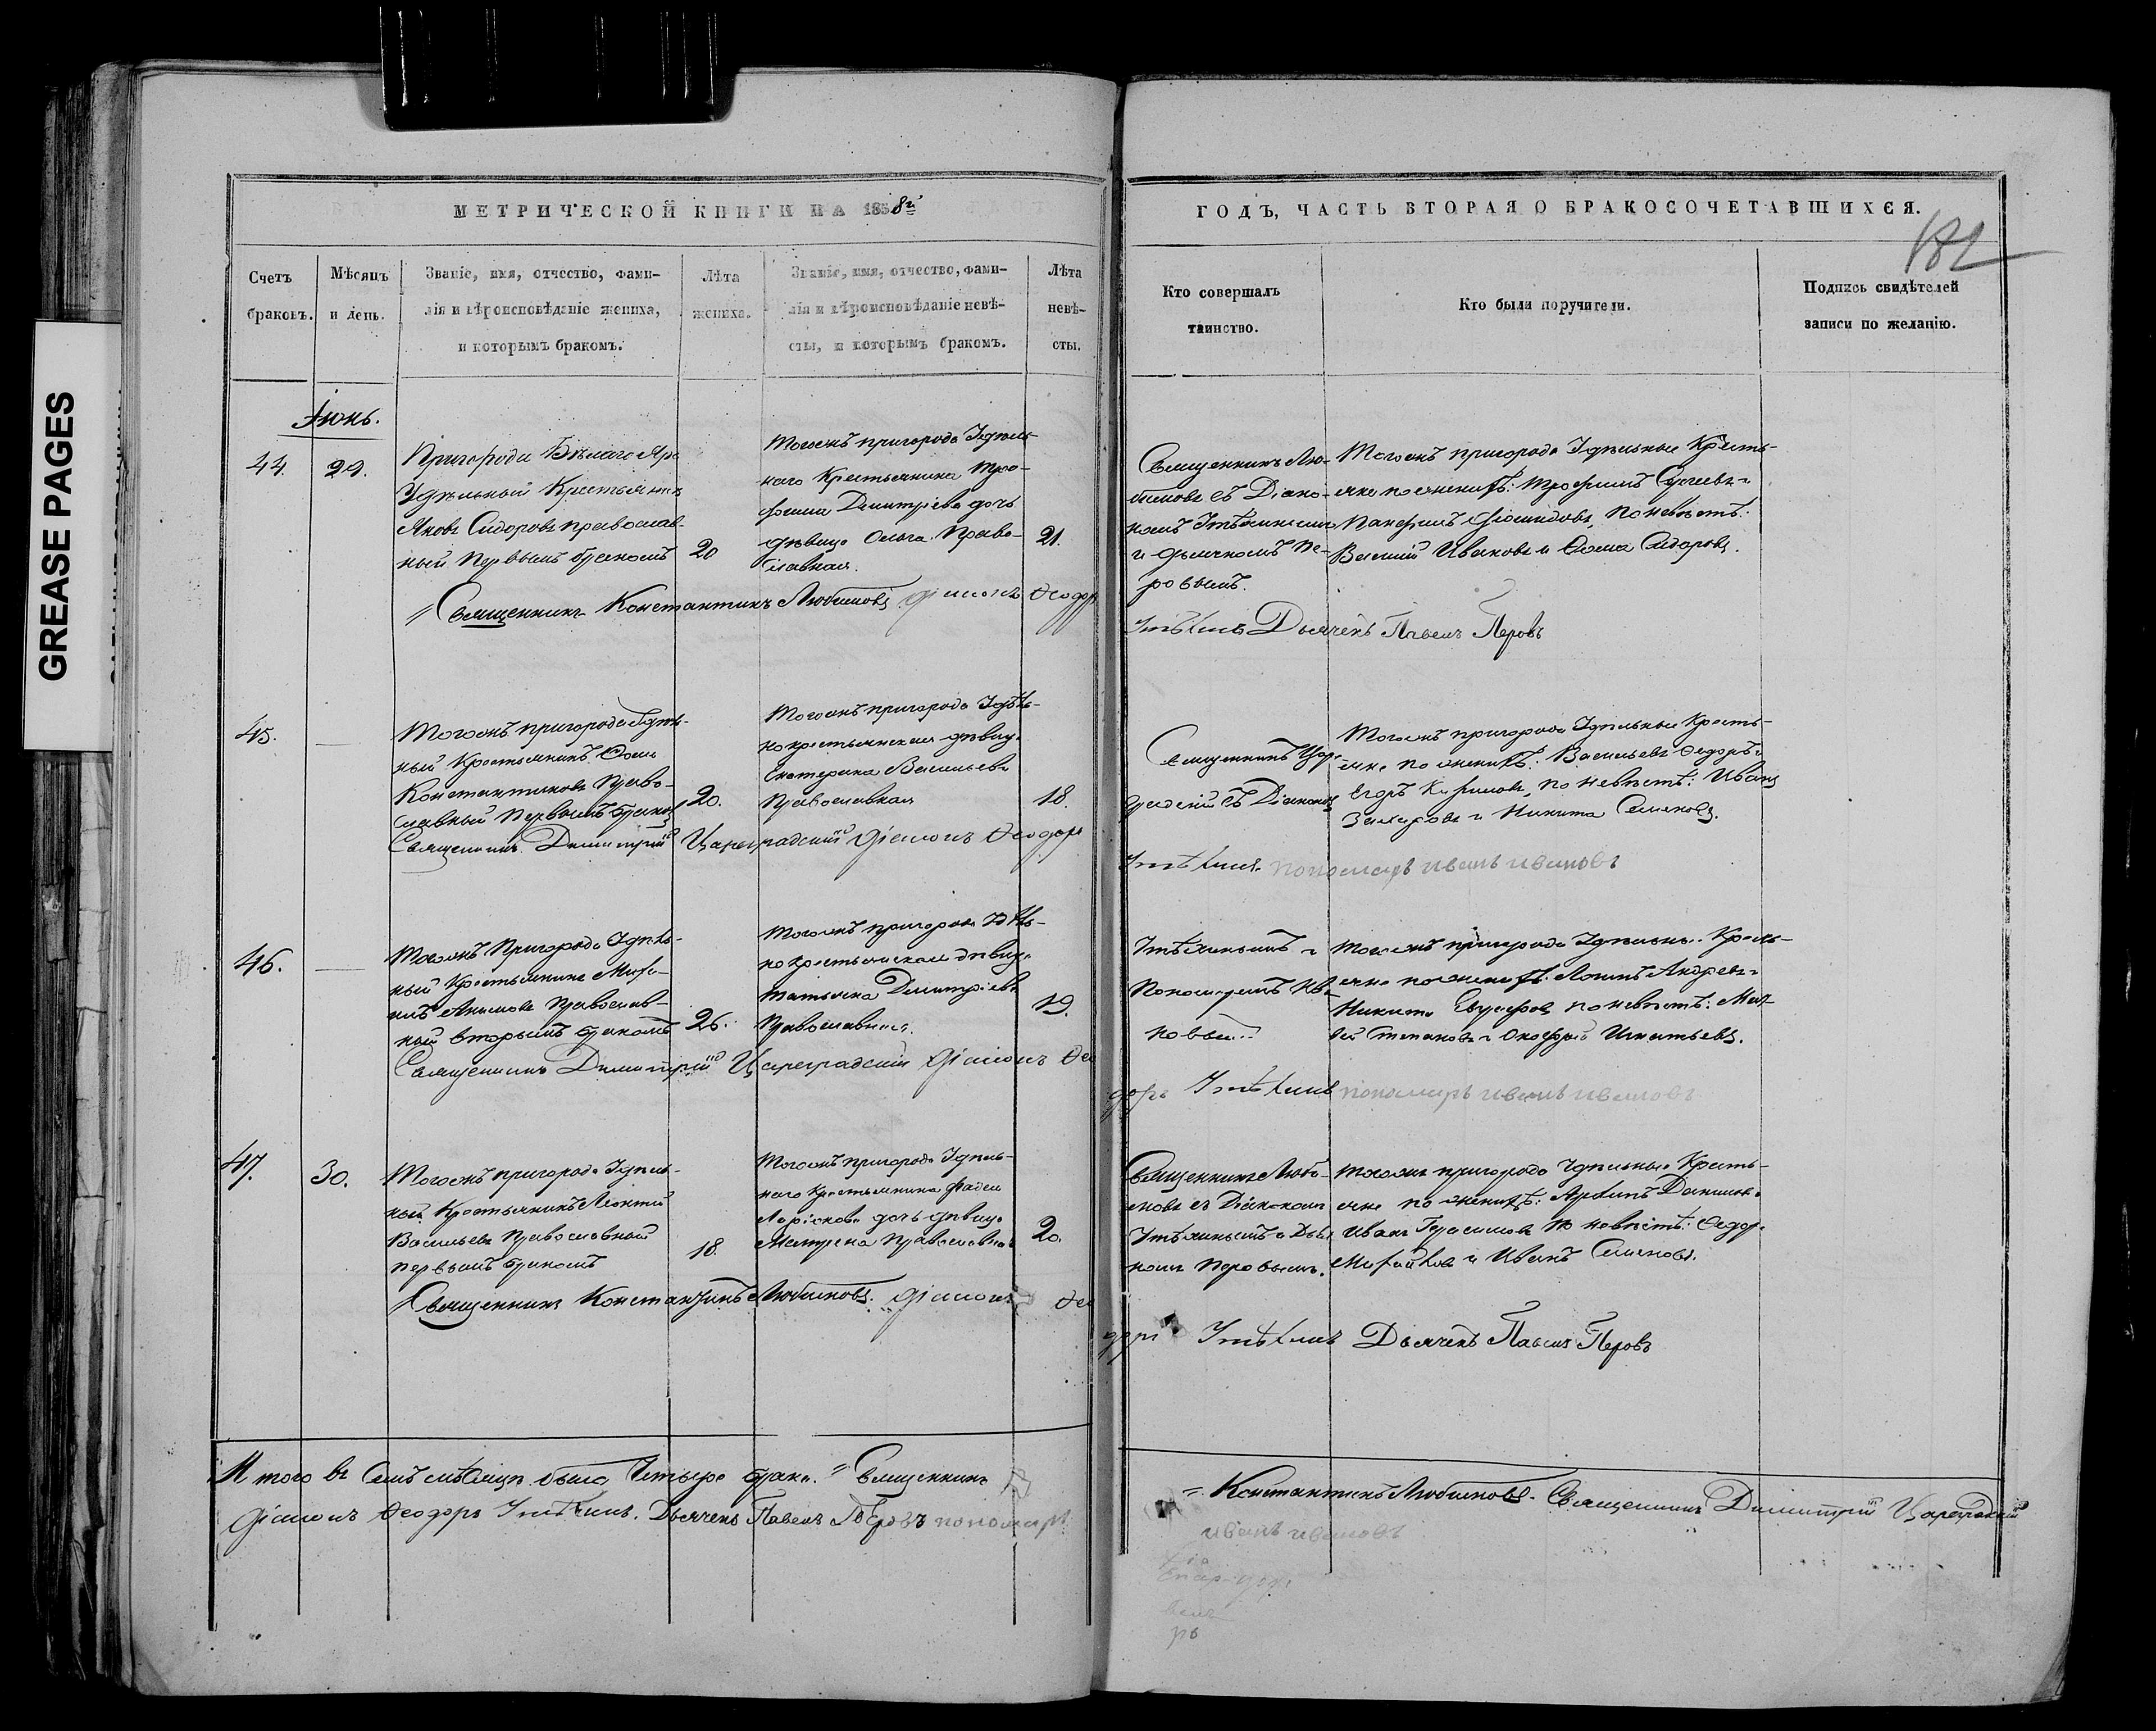 GREASE PAGES
МЕТРИЧЕСКОЙ КНИГИ НА 1858й
ГОДЪ, ЧАСТЬ ВТОРАЯ О БРАКОСОЧЕТАВШИХСЯ.
182
Счетъ
браковъ.
Мѣсяцъ
и день.
Званіе, имя, отчество, фами-
лія и вѣроисповѣданіе жениха,
и которымъ бракомъ.
Лѣта
жениха.
Званіе, имя, отчество, фами-
лія и вѣроисповѣданіе невѣ-
сты, и которымъ бракомъ.
Лѣта
невѣ-
сты.
Кто совершалъ
таинство.
Кто были поручители.
Подпись свидѣтелей
записи по желанію.
Іюнь.
44.
29.
Пригорода Бѣлаго Яра
Удѣльный Крестьянинъ
Яковъ Сидоровъ православ-
ный первымъ бракомъ
20
Тогожъ пригорода Удѣль-
наго Крестьянина Тро-
фима Димитріева дочь
дѣвица Ольга Право-
славная.
21.
Священникъ Лю-
бимовъ съ Діако-
номъ
и дьячкомъ Пе-
ровымъ.
Тогожъ пригорода Удѣльные Кресть-
яне по женихѣ: Трофимъ Сергѣевъ и
по невѣстѣ:
Василій Ивановъ и Ѳома Сидоровъ.
Священникъ Константинъ Любимовъ діаконъ Ѳеодоръ
Дьячекъ Павелъ Перовъ
45.
—
Тогожъ пригорода Удѣль-
ный Крестьянинъ Ѳома
Константиновъ Право-
славный первымъ бракомъ
20.
Тогожъ пригорода Удѣль-
но крестьянская дѣвица
Екатерина Васильева
Православная
18.
Священникъ Царе-
градскій съ Діакономъ
Тогожъ пригорода Удѣльные Кресть-
яне по женихѣ: Васильевъ Ѳедоръ и
Егоръ по невѣстѣ: Иванъ
Захаровъ и Никита Семеновъ.
Священникъ Димитрій Цареградскій діаконъ Ѳеодоръ
пономарь иванъ ивановъ
46.
—
Тогожъ Пригорода Удѣль-
ный Крестьянинъ Миха-
илъ Акимовъ Православ-
ный вторымъ бракомъ
26.
Тогожъ пригорода Удѣль-
но крестьянская дѣвица
Татьяна Димитріева
Православная.
19.
и
Пономаремъ Ива-
новымъ.
Тогожъ пригорода Удѣльные Кресть-
яне по женихѣ: Логинъ Андреевъ и
Никита по невѣстѣ: Мат-
вѣй Степановъ и Игнатьевъ.
Священникъ Димитрій Цареградскій діаконъ Ѳео
доръ
пономарь иванъ ивановъ
47.
30.
Тогожъ пригорода Удѣль-
ный Крестьянинъ Леонтій
Васильевъ Православный
первымъ бракомъ
18.
Тогожъ пригорода Удѣль-
наго Крестьянина Фадея
Ларіонова дочь дѣвица
Матрена Православная
20.
Священникъ Люби-
мовъ съ Діакономъ
и Дьяч-
комъ Перовымъ.
Тогожъ пригорода Удѣльные Кресть-
яне по женихѣ: Архипъ Даниловъ
Иванъ Герасимовъ по невѣстѣ: Ѳедоръ
Михайловъ и Иванъ Семеновъ.
Священникъ Константинъ Любимовъ. діаконъ Ѳео
доръ
Дьячекъ Павелъ Перовъ
И того въ Семъ мѣсяцѣ было Четыре брака. Священникъ
Константинъ Любимовъ. Священникъ Димитрій Цареградскій
діаконъ Ѳеодоръ
Дьячекъ Павелъ Перовъ пономарь
иванъ ивановъ